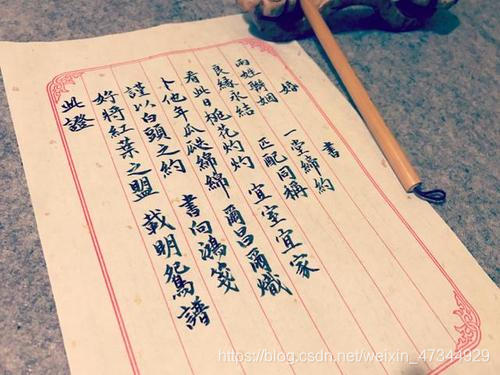 婚 書
両姓聯姻 一堂締約
良緣永結 匹配同稱
看此日桃花灼灼 宜室宜家
卜他年瓜瓞綿綿 爾昌爾熾
謹以白頭之約 書向鴻箋
好將紅葉之盟 載明鴛譜
此證
https://blog.csdn.net/weixin_47344929